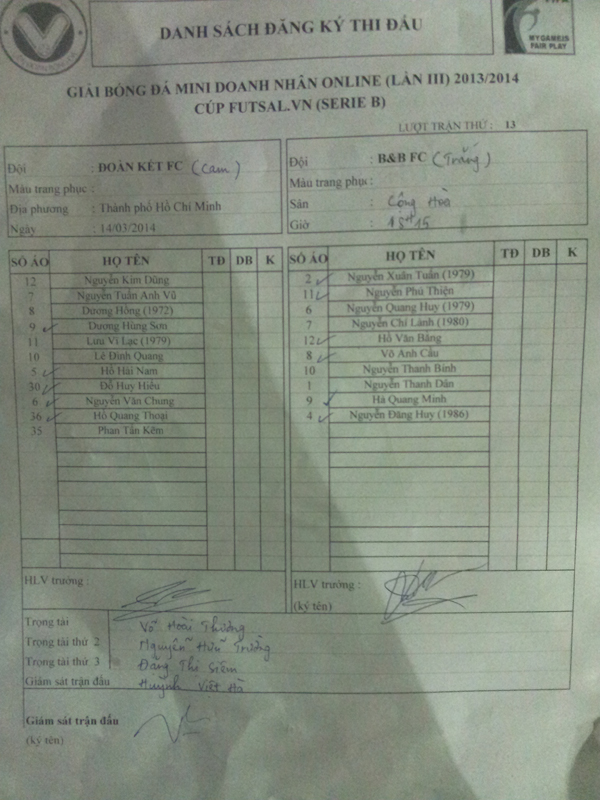 DANH SÁCH ĐĂNG KÝ THI ĐẤU
MYGAMEIS
FAIR PLAY
GIẢI BÓNG ĐÁ MINI DOANH NHÂN ONLINE (LẦN III) 2013/2014
CÚP FUTSAL.VN (SERIE B)
LƯỢT TRẬN THỨ : 13
Đội : ĐOÀN KẾT FC (Cam)
Màu trang phục :
Địa phương : Thành phố Hồ Chí Minh
Ngày : 14/03/2014
Đội : B&B FC (Trắng)
Màu trang phục :
Sân : Cộng Hoà
Giờ : 18H15
SỐ ÁO HỌ TÊN TĐ DB K
12 Nguyễn Kim Dũng
7 Nguyễn Tuấn Anh Vũ
8 Dương Hồng (1972)
9 Dương Hùng Sơn
11 Lưu Vĩ Lạc (1979)
10 Lê Đình Quang
5 Hồ Hải Nam
30 Đỗ Huy Hiếu
6 Nguyễn Văn Chung
36 Hồ Quang Thoại
35 Phan Tấn Kẽm
SỐ ÁO HỌ TÊN TĐ DB K
2 Nguyễn Xuân Tuấn (1979)
11 Nguyễn Phú Thiện
6 Nguyễn Quang Huy (1979)
7 Nguyễn Chí Lành (1980)
12 Hồ Văn Bằng
8 Võ Anh Cầu
10 Nguyễn Thanh Bình
1 Nguyễn Thanh Dân
9 Hà Quang Minh
4 Nguyễn Đăng Huy (1986)
HLV trưởng :
HLV trưởng :
(ký tên)
Trọng tài Võ Hoài Thương
Trọng tài thứ 2 Nguyễn Hữu Trường
Trọng tài thứ 3 Đặng Thị Siêm
Giám sát trận đấu Huỳnh Việt Hà
Giám sát trận đấu
(ký tên)